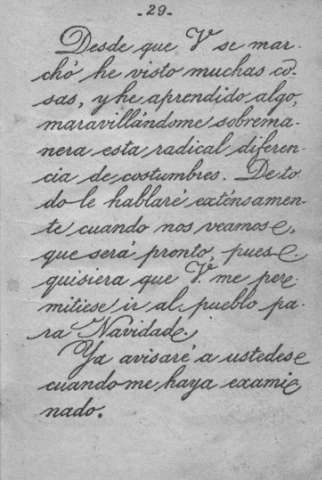 -29-
Desde que V se mar-
chó he visto muchas co-
sas, y he aprendido algo,
maravillándome sobrema-
nera esta radical diferen-
cia de costumbres. De to-
do le hablaré exténsamen-
te cuando nos veamos,
que será pronto, pues
quisiera que V. me per-
mitiese ir al pueblo pa-
ra Navidad.
Ya avisaré a ustedes
cuando me haya exami-
nado.